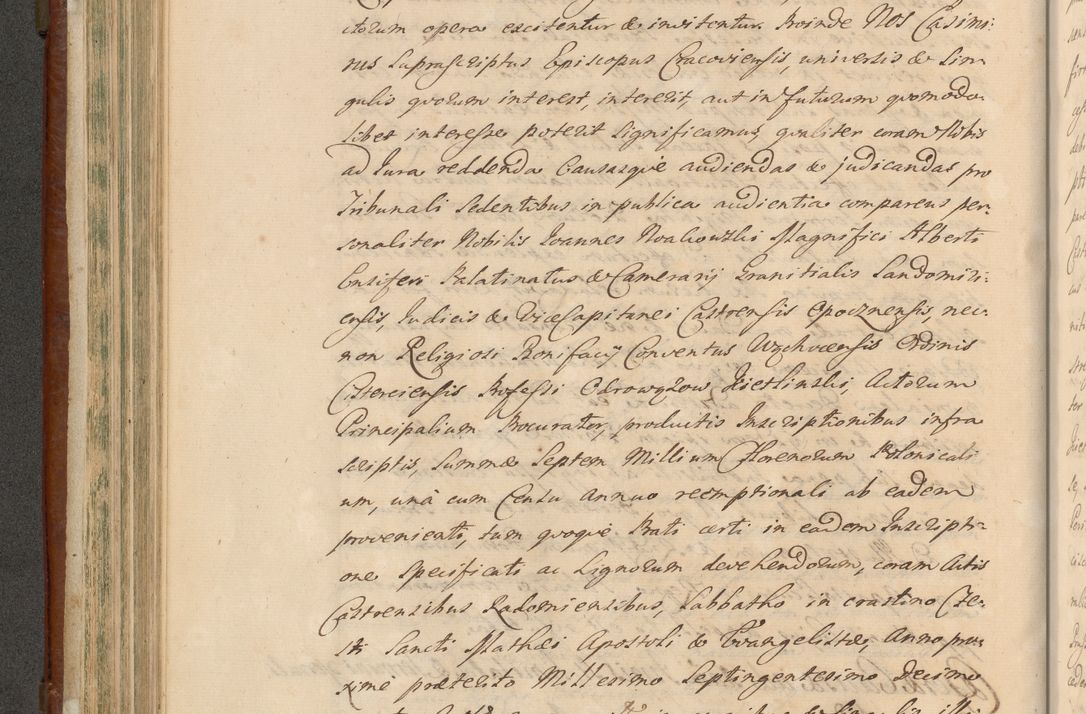 ctorum opera excitentur & invitentur. Proinde NOS Casimi:
rus Suprascriptus Episcopus Cracoviensis, universis & Sin
gulis quorum interest, intererit, aut in futurum quomodo:
libet interesse poterit Significamus, qualiter coram Nobis
ad Iura reddenda Causasquè audiendas & judicandas pro
Tribunali Sedentibus in publica audientia comparens per:
sonaliter Nobilis Ioannes Noakowski Magnifici Alberti
Ensiferi Palatinatus & Camerarij Granitialis Sandomiri:
ensis, Iudicis & ViceCapitanei Castrensis Opocznensis, nec:
non Religiosi Bonifacij Conventus Wąchocensis Ordinis
Cisterciensis Professi Odrowązow Kietlinski, Actorum
Principalium Procurator, productis Inscriptionibus infra
scriptis, Summæ Septem Millium Florenorum Polonicali
um, unà cum Censu annuo reemptionali ab eadem
provenienti, tum quoquè Prati certi in eadem Inscripti:
one Specificati ac Lignorum devehendorum, coram Actis
Castrensibus Radomiensibus, Sabbatho in crastino Fe:
sti Sancti Mathæi Apostoli & Evangelistæ, Anno pro:
ximè præterito Millesimo Septingentesimo Decimo